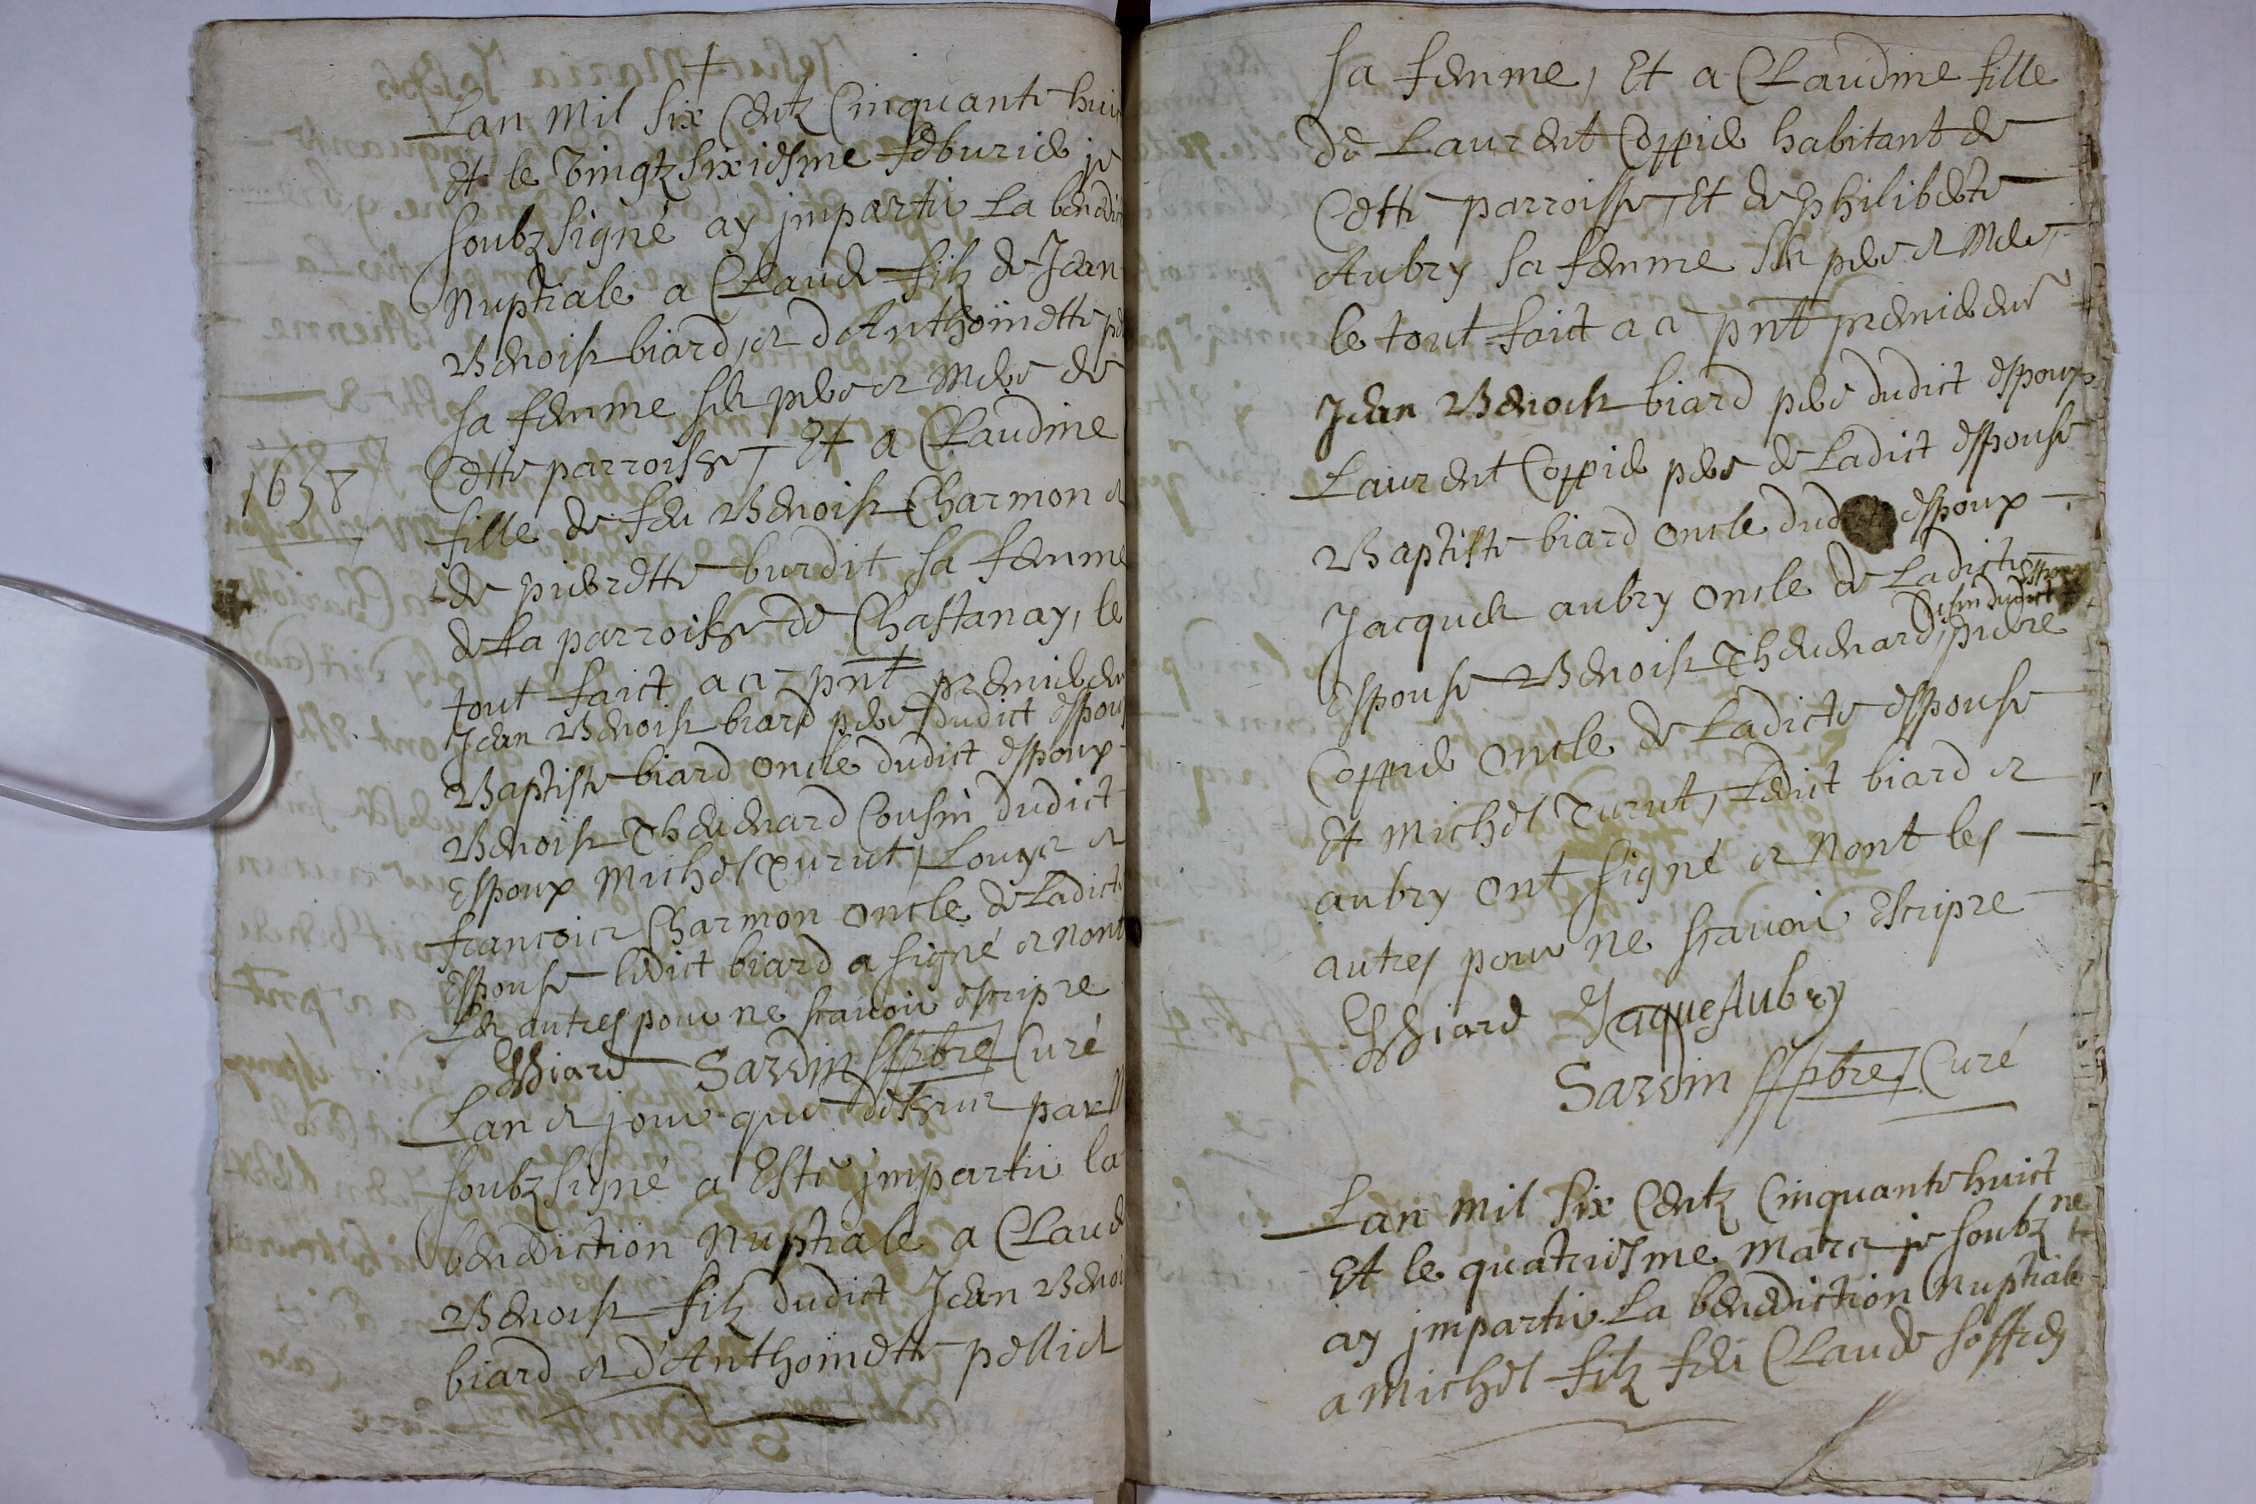 Lan mil six Centz Cinquante huict
Et le vingtz sixiesme feburier je
soubzsigné ay jmpartir La benedict
Nuptiale a Claude filz de Jean
Benoist biard, et d'Anthoinette
sa femme ses pere et mere de
1658
Cette parroisse, Et a Claudine
fille de feu Benoist Charmon et
de pierrette burdit sa femme
de La parroisse de Chastanay, le
tout faict a ce pnt premierem
Jean Benoist biard pere dudict espoux
Baptiste biard oncle dudict espoux
Benoist Theuenard Cousin dudict
Espoux Michel Turut, Louys et
francois Charmon oncle de Ladicte
Espouse ledict biard a signé et nont
Les autres pour ne scauoir escripre
Biard Sardin pbre Curé
Lan et jour que dessus par
soubzsigné a Esté jmpartir la
benediction Nuptiale a Claude
Benoist filz dudict Jean Benoi
biard et d'Anthoinette pellict
sa femme, Et a Claudine fille
de Laurent Coppie habitant de
Cette parroisse, Et de philiberte
Aubry sa femme ses pere et mere,
le tout faict a ce pnt premierem
Jean Benoist biard pere dudict espoux
Laurent Coppie pere de Ladict espouse
Baptiste biard oncle dudict espoux
Jacques aubry oncle de Ladicte
Cousin dudict
Espouse Benoist Theuenard, pierre
Coppie oncle de Ladicte espouse
Et Michel Turut, Ledict biard et
aubry ont signé et nont les
autres pour ne scauoir Escripre
Biard Jaques Aubry
Sardin pbre Curé
Lan mil six Centz Cinquante huict
Et le quatriesme mars je soubzne
ay jmpartir La benediction Nuptiale
a Michel filz feu Claude